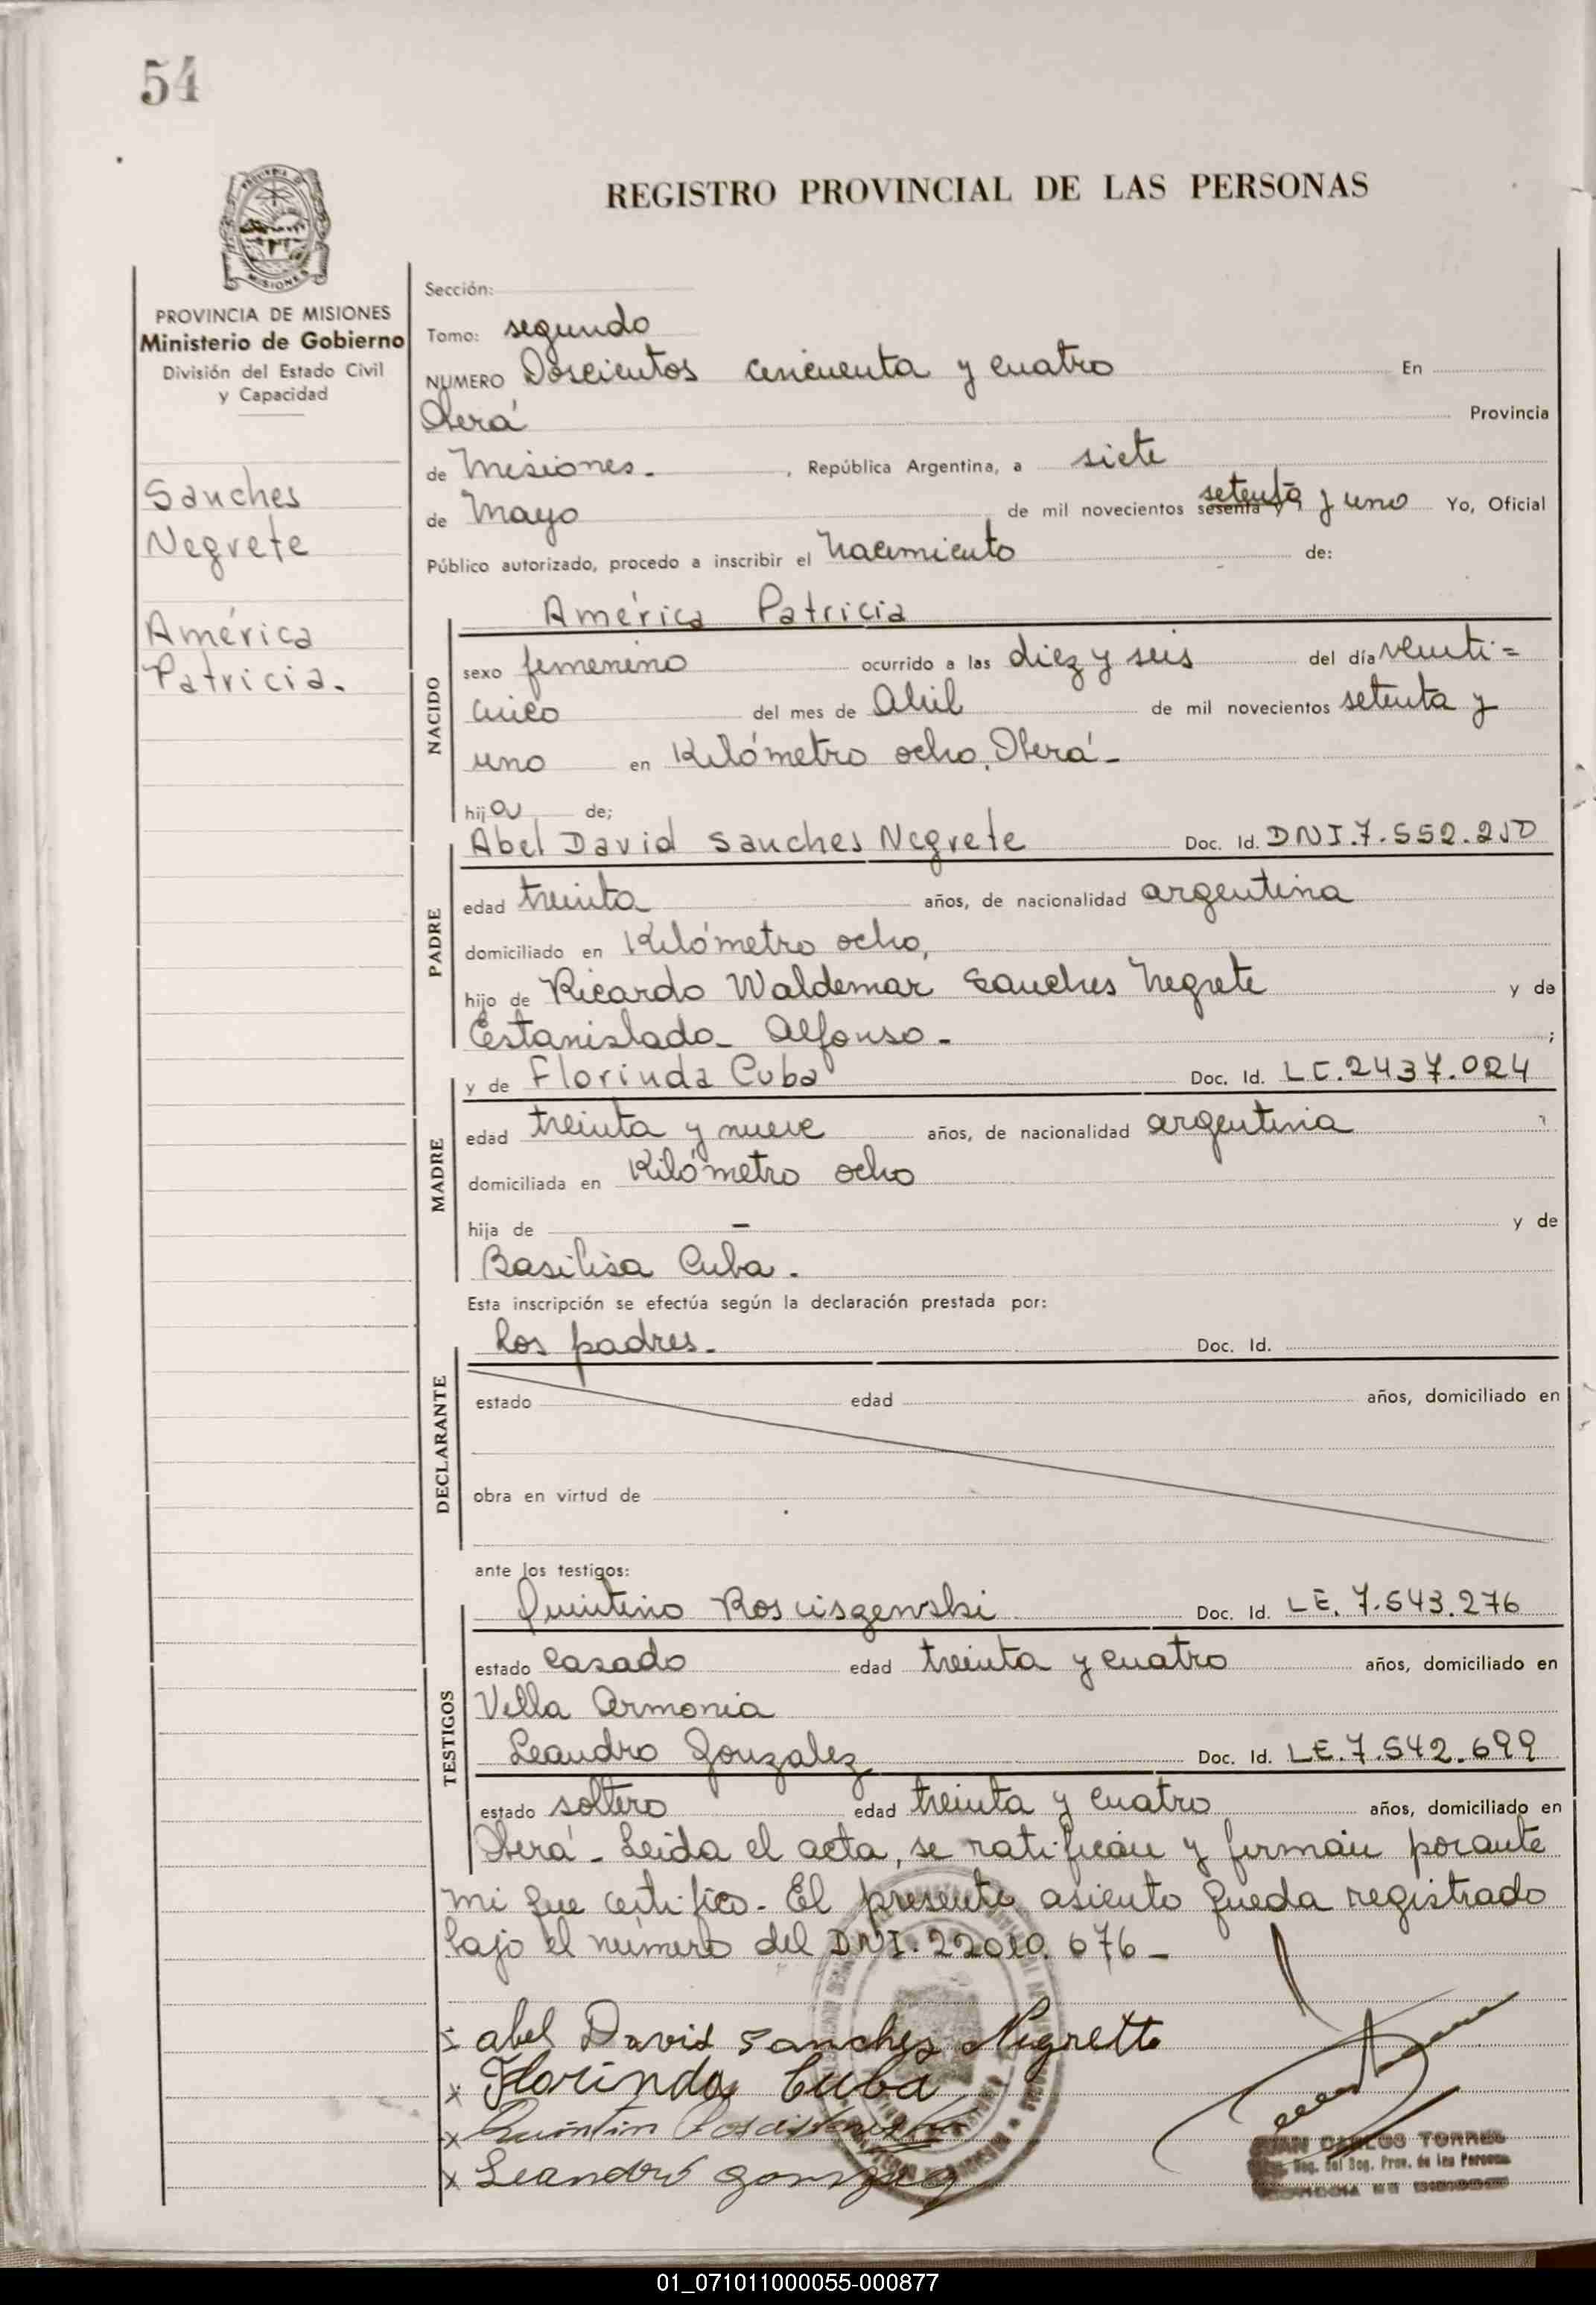 54
REGISTRO PROVINCIAL DE LAS PERSONAS
MISIONES
PROVINCIA DE MISIONES
Ministerio de Gobierno
División del Estado Civil
y Capacidad
Sanches
Negrete
América
Patricia.
Sección:
Tomo: segundo
NUMERO Doscientos cincuenta y cuatro En
Oberá Provincia
de Misiones. , República Argentina, a siete
de Mayo de mil novecientos sesenta y setenta y uno Yo, Oficial
Público autorizado, procedo a inscribir el nacimiento de:
América Patricia
NACIDO
sexo femenino ocurrido a las diez y seis del día veinti=
cinco del mes de Abril de mil novecientos setenta y
uno en Kilómetro ocho, Oberá-
hija de;
PADRE
Abel David Sanches Negrete Doc. Id. DNI.7.552.250
edad treinta años, de nacionalidad argentina
domiciliado en Kilómetro ocho,
hijo de Ricardo Waldemar Sanches Negrete y de
Estanislada Alfonso - ;
MADRE
y de Florinda Cuba Doc. Id. LC.2437.024
edad treinta y nueve años, de nacionalidad argentina
domiciliada en Kilómetro ocho
hija de - y de
Basilisa Cuba.
Esta inscripción se efectúa según la declaración prestada por:
DECLARANTE
Los padres. Doc. Id.
estado edad años, domiciliado en
obra en virtud de
ante los testigos:
TESTIGOS
Quintino Roscisgewski Doc. Id. LE. 7.543.276
estado casado edad treinta y cuatro años, domiciliado en
Villa Armonia
Leandro Gonzalez Doc. Id. LE.7.542.699
estado soltero edad treinta y cuatro años, domiciliado en
Oberá - Leída el acta, se ratifican y firman por ante
mi que certifico. El presente asiento queda registrado
bajo el número del DNI. 22010.676-
x abel David Sanches Negrette
x Florinda Cuba
x Quintin
x Leandro Gonzalez
JUAN CARLOS TORRES
Reg. del Reg. Prov. de las Personas
01_071011000055-000877